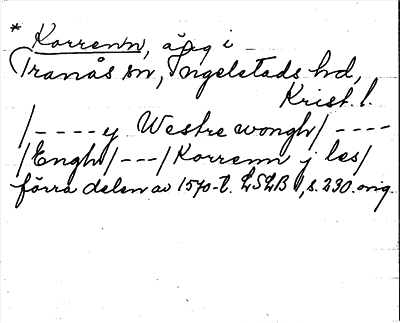 * Korrenn, äng i
Tranås sn, Ingelstads hd,
Krist. l.
/----y Westre wongh/ ----
/Engh/---/Korrenn j les/
förra delen av 1570-t. LSLB I, s. 230. orig.